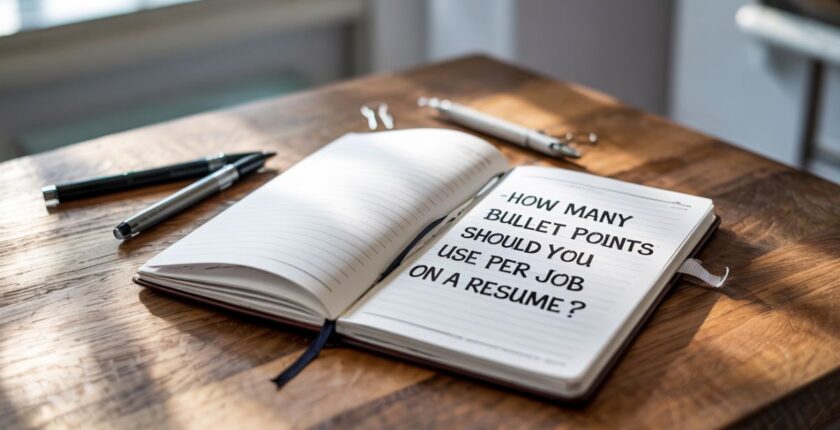 -HOW MANY
BULLET POINTS
SHOULD YOU
USE PER JOB
ON A RESUME?